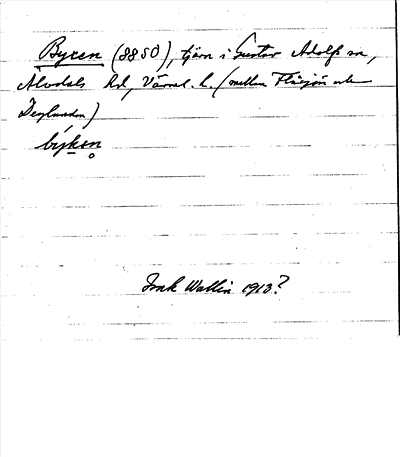 Byxen (8850), tjärn i Gustav Adolfs sn,
Älvdals hd, Värml. l. (mellan Flåsjön och
Deglunden)
býken
Jnnk Wallin 1913?